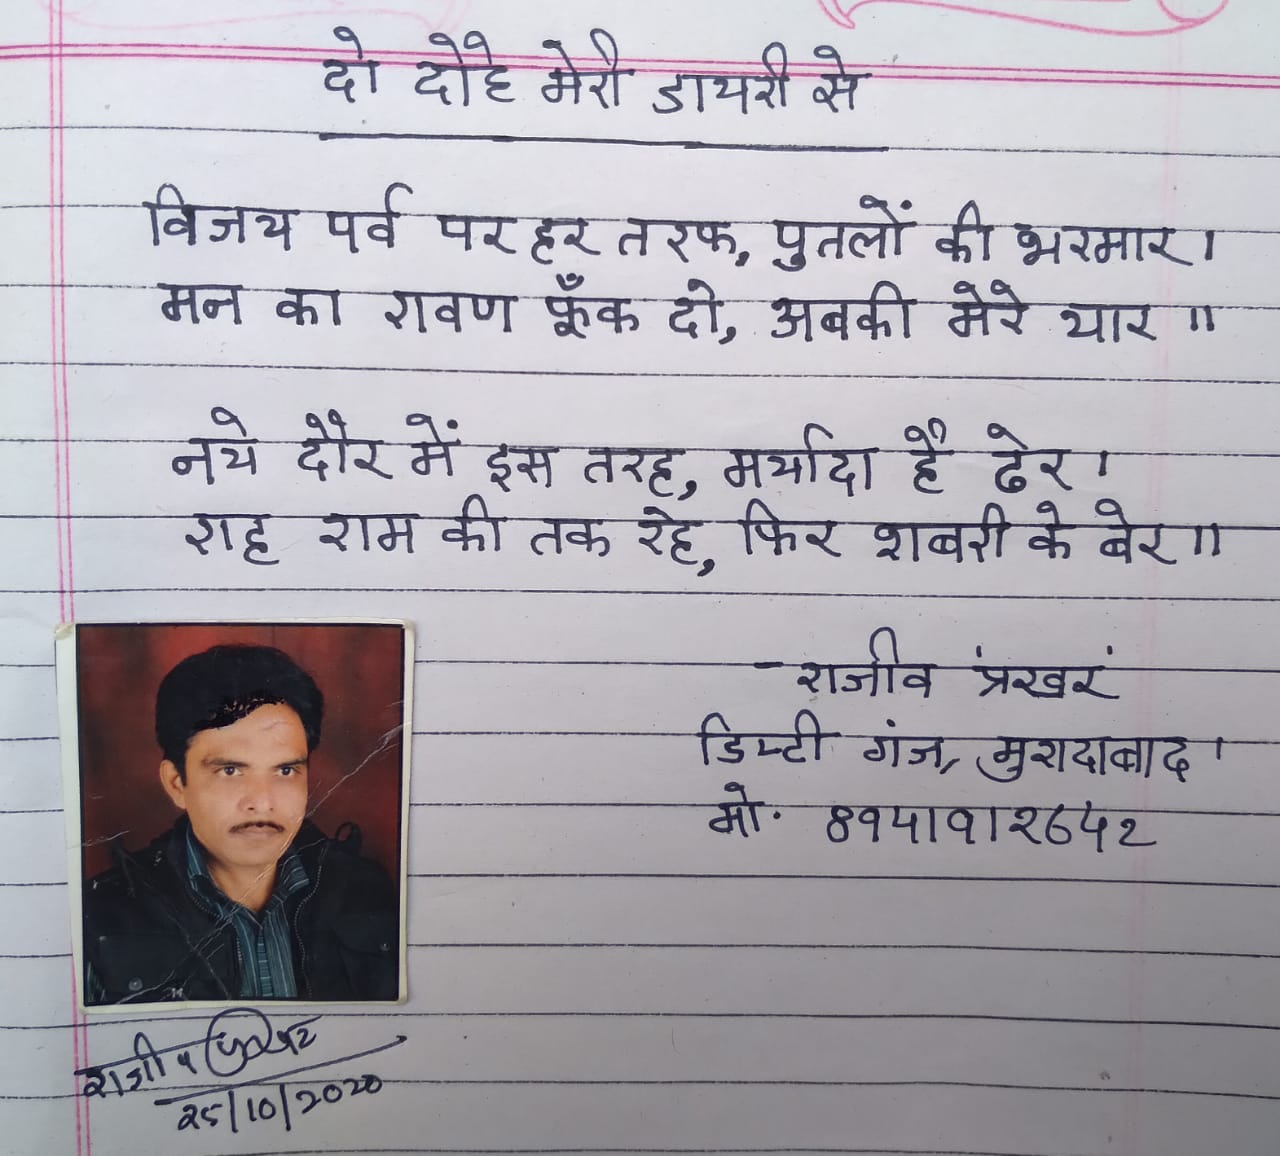 दो दोहे मेरी डायरी से
विजय पर्व पर हर तरफ, पुतलों की भरमार।
मन का रावण फूँक दो, अबकी मेरे यार॥
नये दौर में इस तरह, मर्यादा है ढेर।
राह राम की तक रहे, फिर शबरी के बेर॥
- राजीव 'प्रखर'
डिप्टी गंज, मुरादाबाद।
मो. ८९४१९१२६४२
राजीव प्रखर
25/10/2020